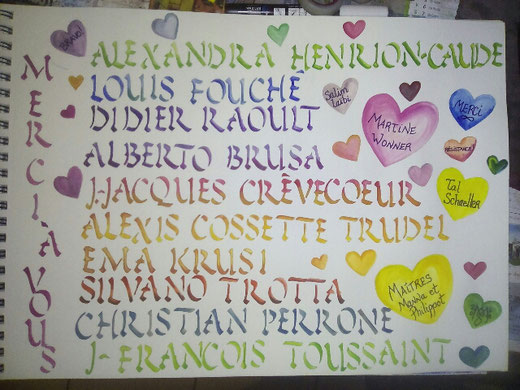 MERCI À VOUS
BRAVO!
ALEXANDRA HENRION-CAUDE
LOUIS FOUCHÉ
DIDIER RAOULT
ALBERTO BRUSA
J-JACQUES CRÈVECOEUR
ALEXIS COSSETTE TRUDEL
EMA KRUSI
SILVANO TROTTA
CHRISTIAN PERRONE
J-FRANCOIS TOUSSAINT
Salim
Laïbi
MARTINE
WONNER
MERCI
RÉSISTANCE
Tal
Schaller
MAITRES
et
Philippot